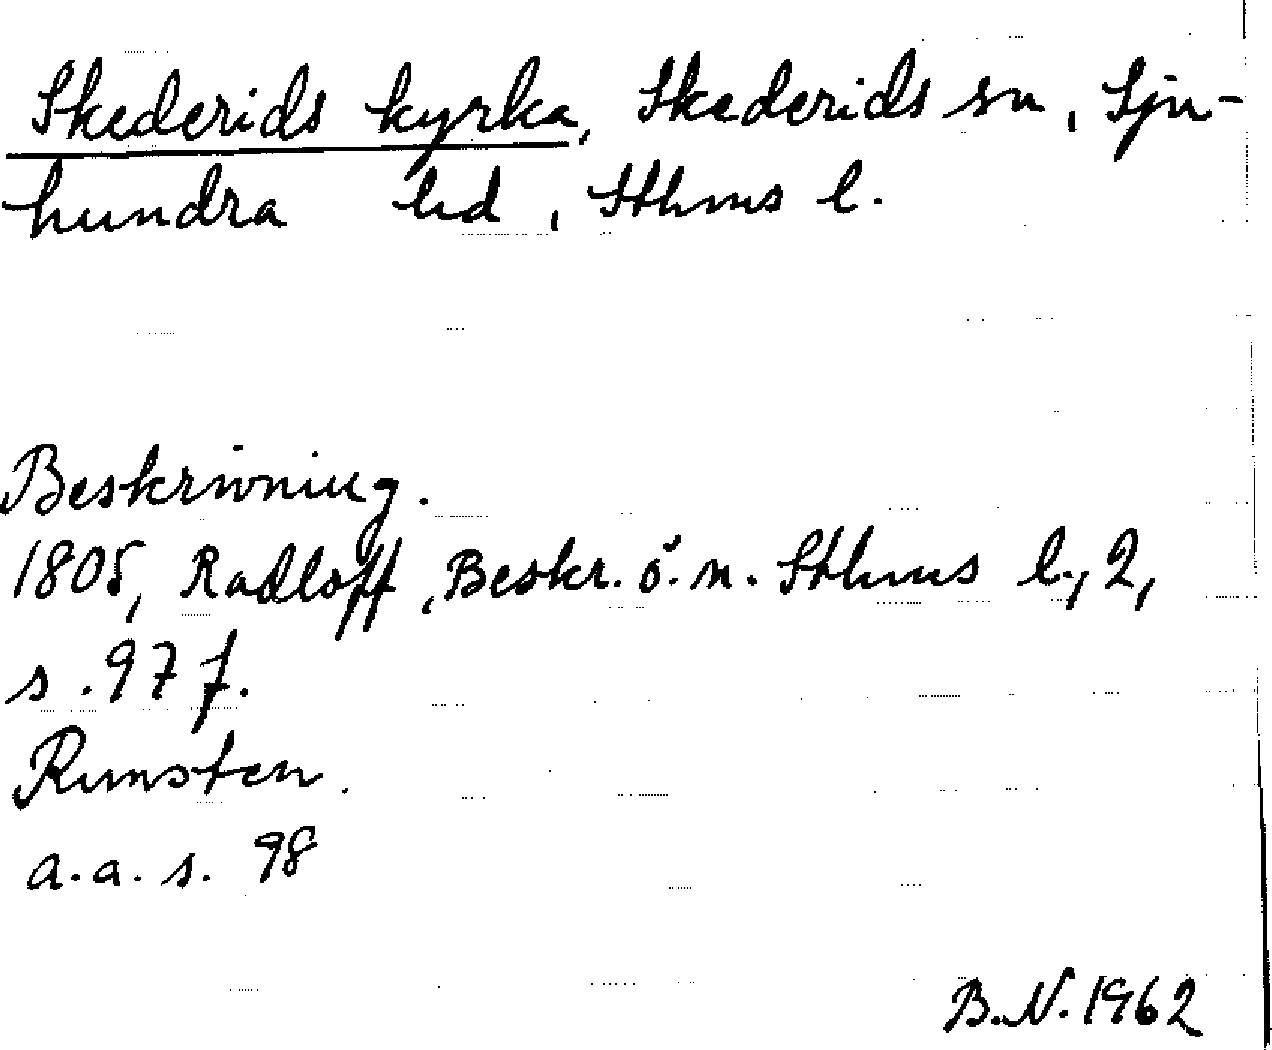 Skederids kyrka, Skederids sn, Sju-
hundra hd, Sthms l.
Beskrivning.
1805, Radloff, Beskr. ö. n. Sthms l., 2,
s. 97 f.
Runsten.
a.a. s. 98
B.N. 1962